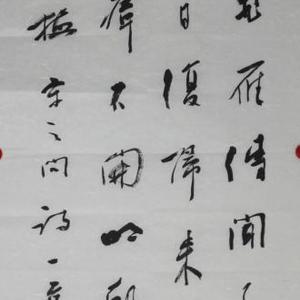 飛雁傳聞
日復歸来
瘴不開明朝
梅宋之問詩一首